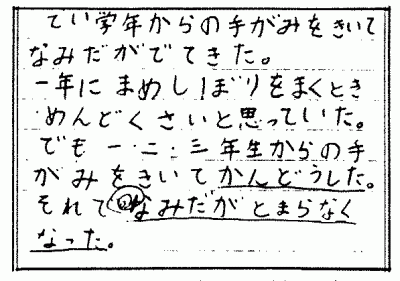 てい学年からの手がみをきいて
なみだがでてきた。
一年に まめしぼりをまくとき
めんどくさいと思っていた。
でも一・二・三年生からの手
がみをきいてかんどうした。
それで なみだがとまらなく
なった。